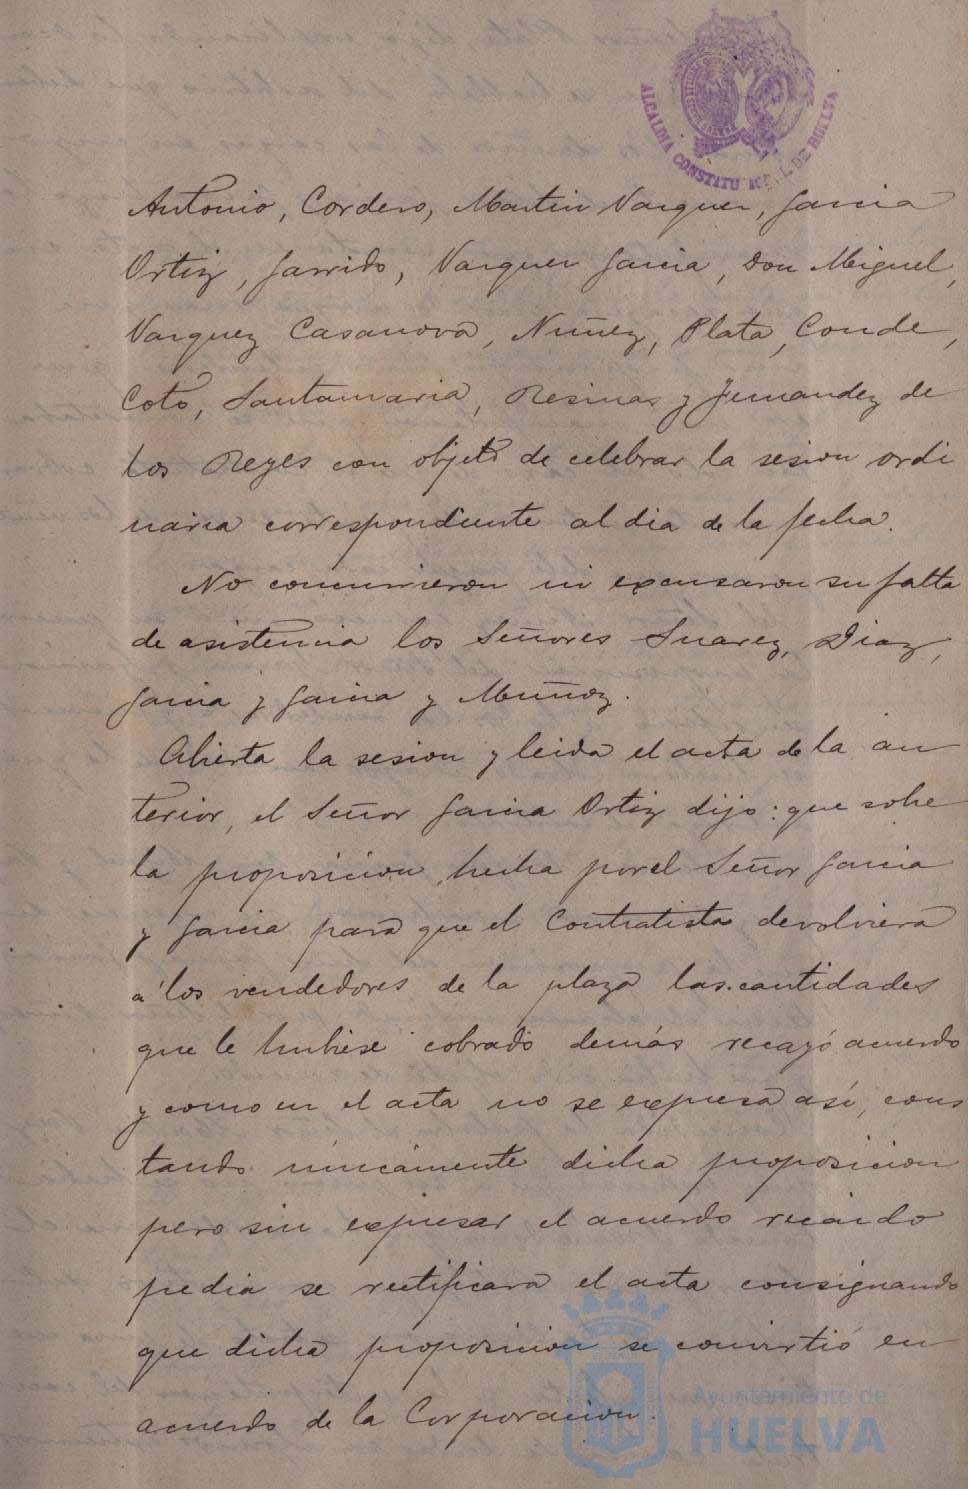 ALCALDIA CONSTITUCIONAL DE HUELVA
Antonio, Cordero, Martin Vazquez, Garcia
Ortiz, Garrido, Vazquez Garcia, Don Miguel,
Vazquez Casanova, Nuñez, Plata, Conde,
Coto, Santamaria, Resinas y Fernandez de
los Reyes con objeto de celebrar la sesion ordi
naria correspondiente al dia de la fecha.
No concurrieron ni excusaron su falta
de asistencia los Señores Suarez, Diaz,
Garcia y Garcia y Muñoz.
Abierta la sesion y leida el acta de la an
terior, el Señor Garcia Ortiz dijo: que sobre
la proposicion hecha por el Señor Garcia
y Garcia para que el Contratista devolviera
á los vendedores de la plaza las cantidades
que le hubiese cobrado demás recayó acuerdo
y como en el acta no se expresa así, cons
tando únicamente dicha proposicion
pero sin expresar el acuerdo recaido
pedia se rectificara el acta consignando
que dicha proposicion se convirtió en
acuerdo de la Corporacion.
Ayuntamiento de
HUELVA